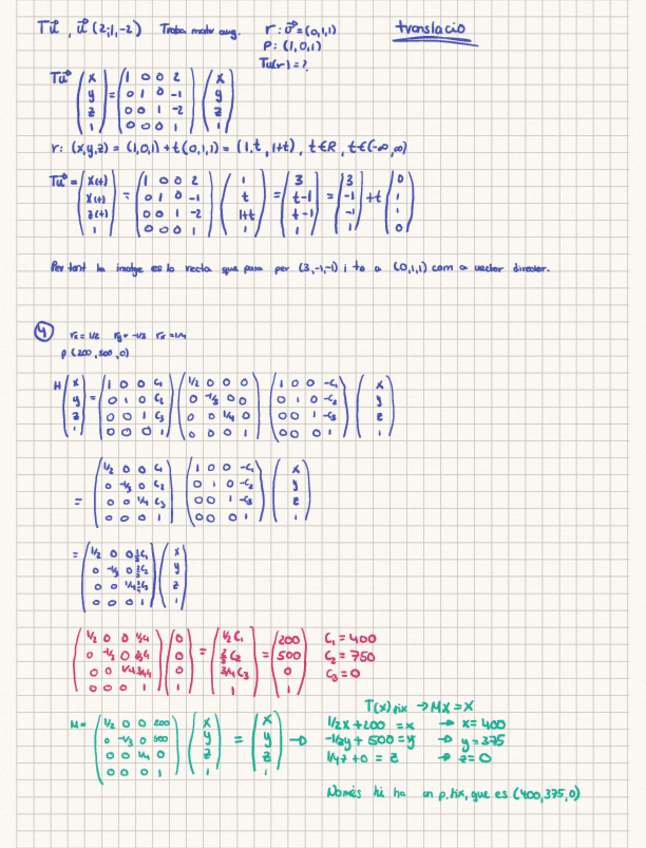 Tu⃗ , u⃗ (2,-1,-2) Troba matr aug. r: v⃗ = (0,1,1) translacio
P: (1,0,1)
Tu(r) = ?
Tu⃗ (x y z 1) = (1 0 0 2 / 0 1 0 -1 / 0 0 1 -2 / 0 0 0 1) (x y z 1)
r: (x,y,z) = (1,0,1) + t(0,1,1) = (1,t,1+t), t∈R, t∈(-∞,∞)
Tu⃗ = (x(t) x(t) z(t) 1) = (1 0 0 2 / 0 1 0 -1 / 0 0 1 -2 / 0 0 0 1) (1 t 1+t 1) = (3 t-1 t-1 1) = (3 -1 -1 1) + t (0 1 1 0)
Per tant la imatge es la recta que pasa per (3,-1,-1) i te a (0,1,1) com a vector director.
4 rx = 1/2 ry = -1/3 rx = 1/4
p (200,500,0)
H (x y z 1) = (1 0 0 C1 / 0 1 0 C2 / 0 0 1 C3 / 0 0 0 1) (1/2 0 0 0 / 0 -1/3 0 0 / 0 0 1/4 0 / 0 0 0 1) (1 0 0 -C1 / 0 1 0 -C2 / 0 0 1 -C3 / 0 0 0 1) (x y z 1)
= (1/2 0 0 C1 / 0 -1/3 0 C2 / 0 0 1/4 C3 / 0 0 0 1) (1 0 0 -C1 / 0 1 0 -C2 / 0 0 1 -C3 / 0 0 0 1) (x y z 1)
(x y z 1)
C1 = 400
C2 = 750
C3 = 0
T(x) fix → MX = X
M = (1/2 0 0 200 / 0 -1/3 0 500 / 0 0 1/4 0 / 0 0 0 1) (x y z 1) = (x y z 1) →
1/2x + 200 = x → x = 400
-1/3y + 500 = y → y = 375
1/4z + 0 = z → z = 0
Només hi ha un p. fix, que es (400,375,0)